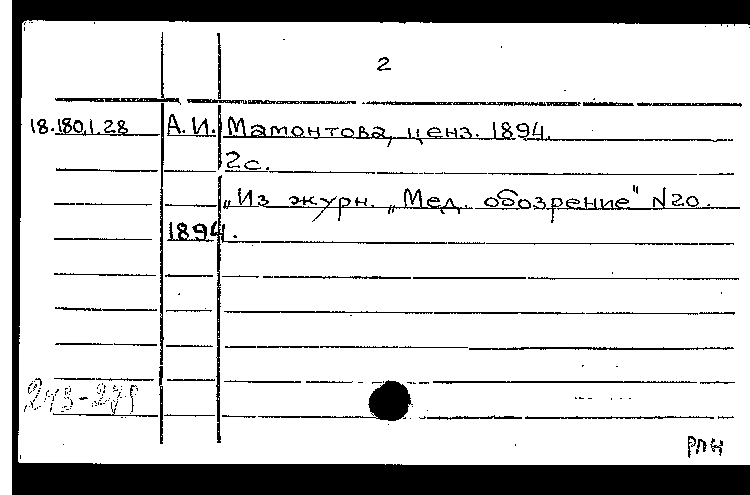 2
18.180.1.28 А. И. Мамонтова, ценз. 1894.
2с.
„Из журн. „Мед. обозрение" N20.
1894.
РПН